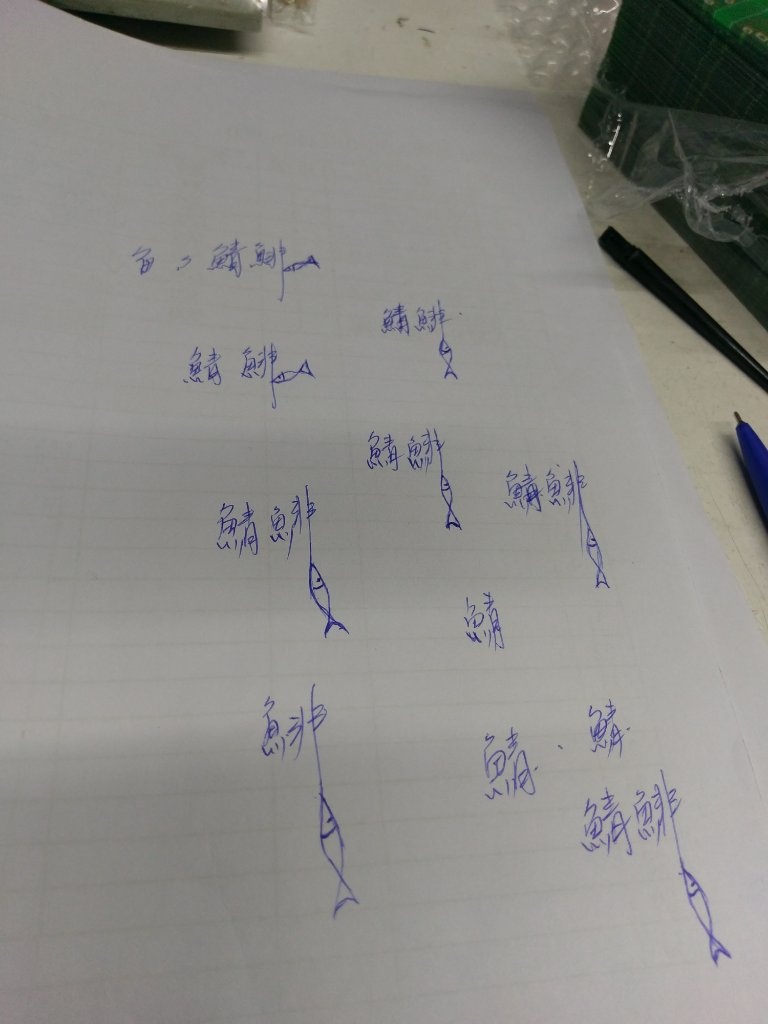 鯖鯡
鯖鯡
鯖鯡
鯖鯡
鯖鯡
鯖鯡
鯖
鯡
鯖
鯖
鯖鯡